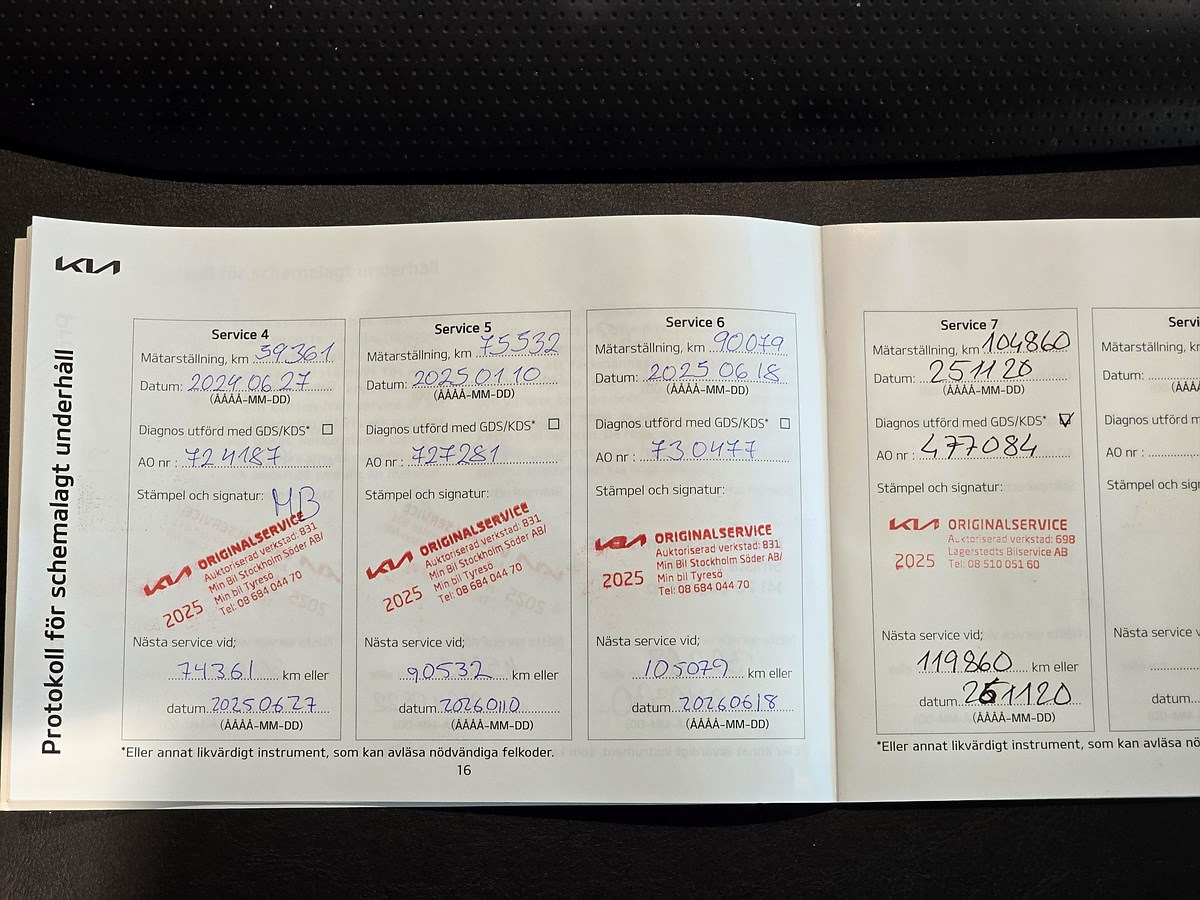 KIA
Protokoll för schemalagt underhåll
Service 4
Mätarställning, km 59361
Datum: 2024 06 27
(ÅÅÅÅ-MM-DD)
Diagnos utförd med GDS/KDS*
AO nr : 724187
Stämpel och signatur:
MB
KIA ORIGINALSERVICE
Auktoriserad verkstad: 831
Min Bil Stockholm Söder AB/
2025 Min bil Tyresö
Tel: 08 684 044 70
Nästa service vid;
74361 km eller
datum 2025 06 27
(ÅÅÅÅ-MM-DD)
Service 5
Mätarställning, km 75532
Datum: 2025 01 10
(ÅÅÅÅ-MM-DD)
Diagnos utförd med GDS/KDS*
AO nr : 727281
Stämpel och signatur:
KIA ORIGINALSERVICE
Auktoriserad verkstad: 831
Min Bil Stockholm Söder AB/
2025 Min bil Tyresö
Tel: 08 684 044 70
Nästa service vid;
90532 km eller
datum 20260110
(ÅÅÅÅ-MM-DD)
Service 6
Mätarställning, km 90079
Datum: 2025 06 18
(ÅÅÅÅ-MM-DD)
Diagnos utförd med GDS/KDS*
AO nr : 730477
Stämpel och signatur:
KIA ORIGINALSERVICE
Auktoriserad verkstad: 831
Min Bil Stockholm Söder AB/
2025 Min bil Tyresö
Tel: 08 684 044 70
Nästa service vid;
105079 km eller
datum 20260618
(ÅÅÅÅ-MM-DD)
*Eller annat likvärdigt instrument, som kan avläsa nödvändiga felkoder.
16
Service 7
Mätarställning, km 104860
Datum: 251120
(ÅÅÅÅ-MM-DD)
Diagnos utförd med GDS/KDS*
AO nr : 477084
Stämpel och signatur:
KIA ORIGINALSERVICE
Auktoriserad verkstad: 698
2025 Lagerstedts Bilservice AB
Tel: 08 510 051 60
Nästa service vid;
119860 km eller
datum 261120
(ÅÅÅÅ-MM-DD)
Servi
Mätarställning, k
Datum:
(ÅÅÅ
Diagnos utförd m
AO nr :
Stämpel och sign
Nästa service v
datum
*Eller annat likvärdigt instrument, som kan avläsa nö